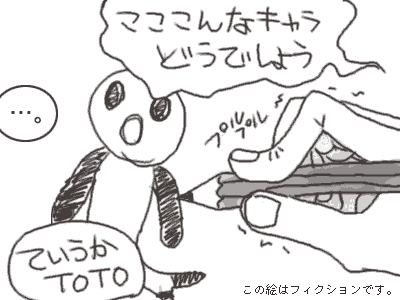 ここここんなキャラ
どうでしょう
…。
プルプル
ていうか
TOTO
この絵はフィクションです。